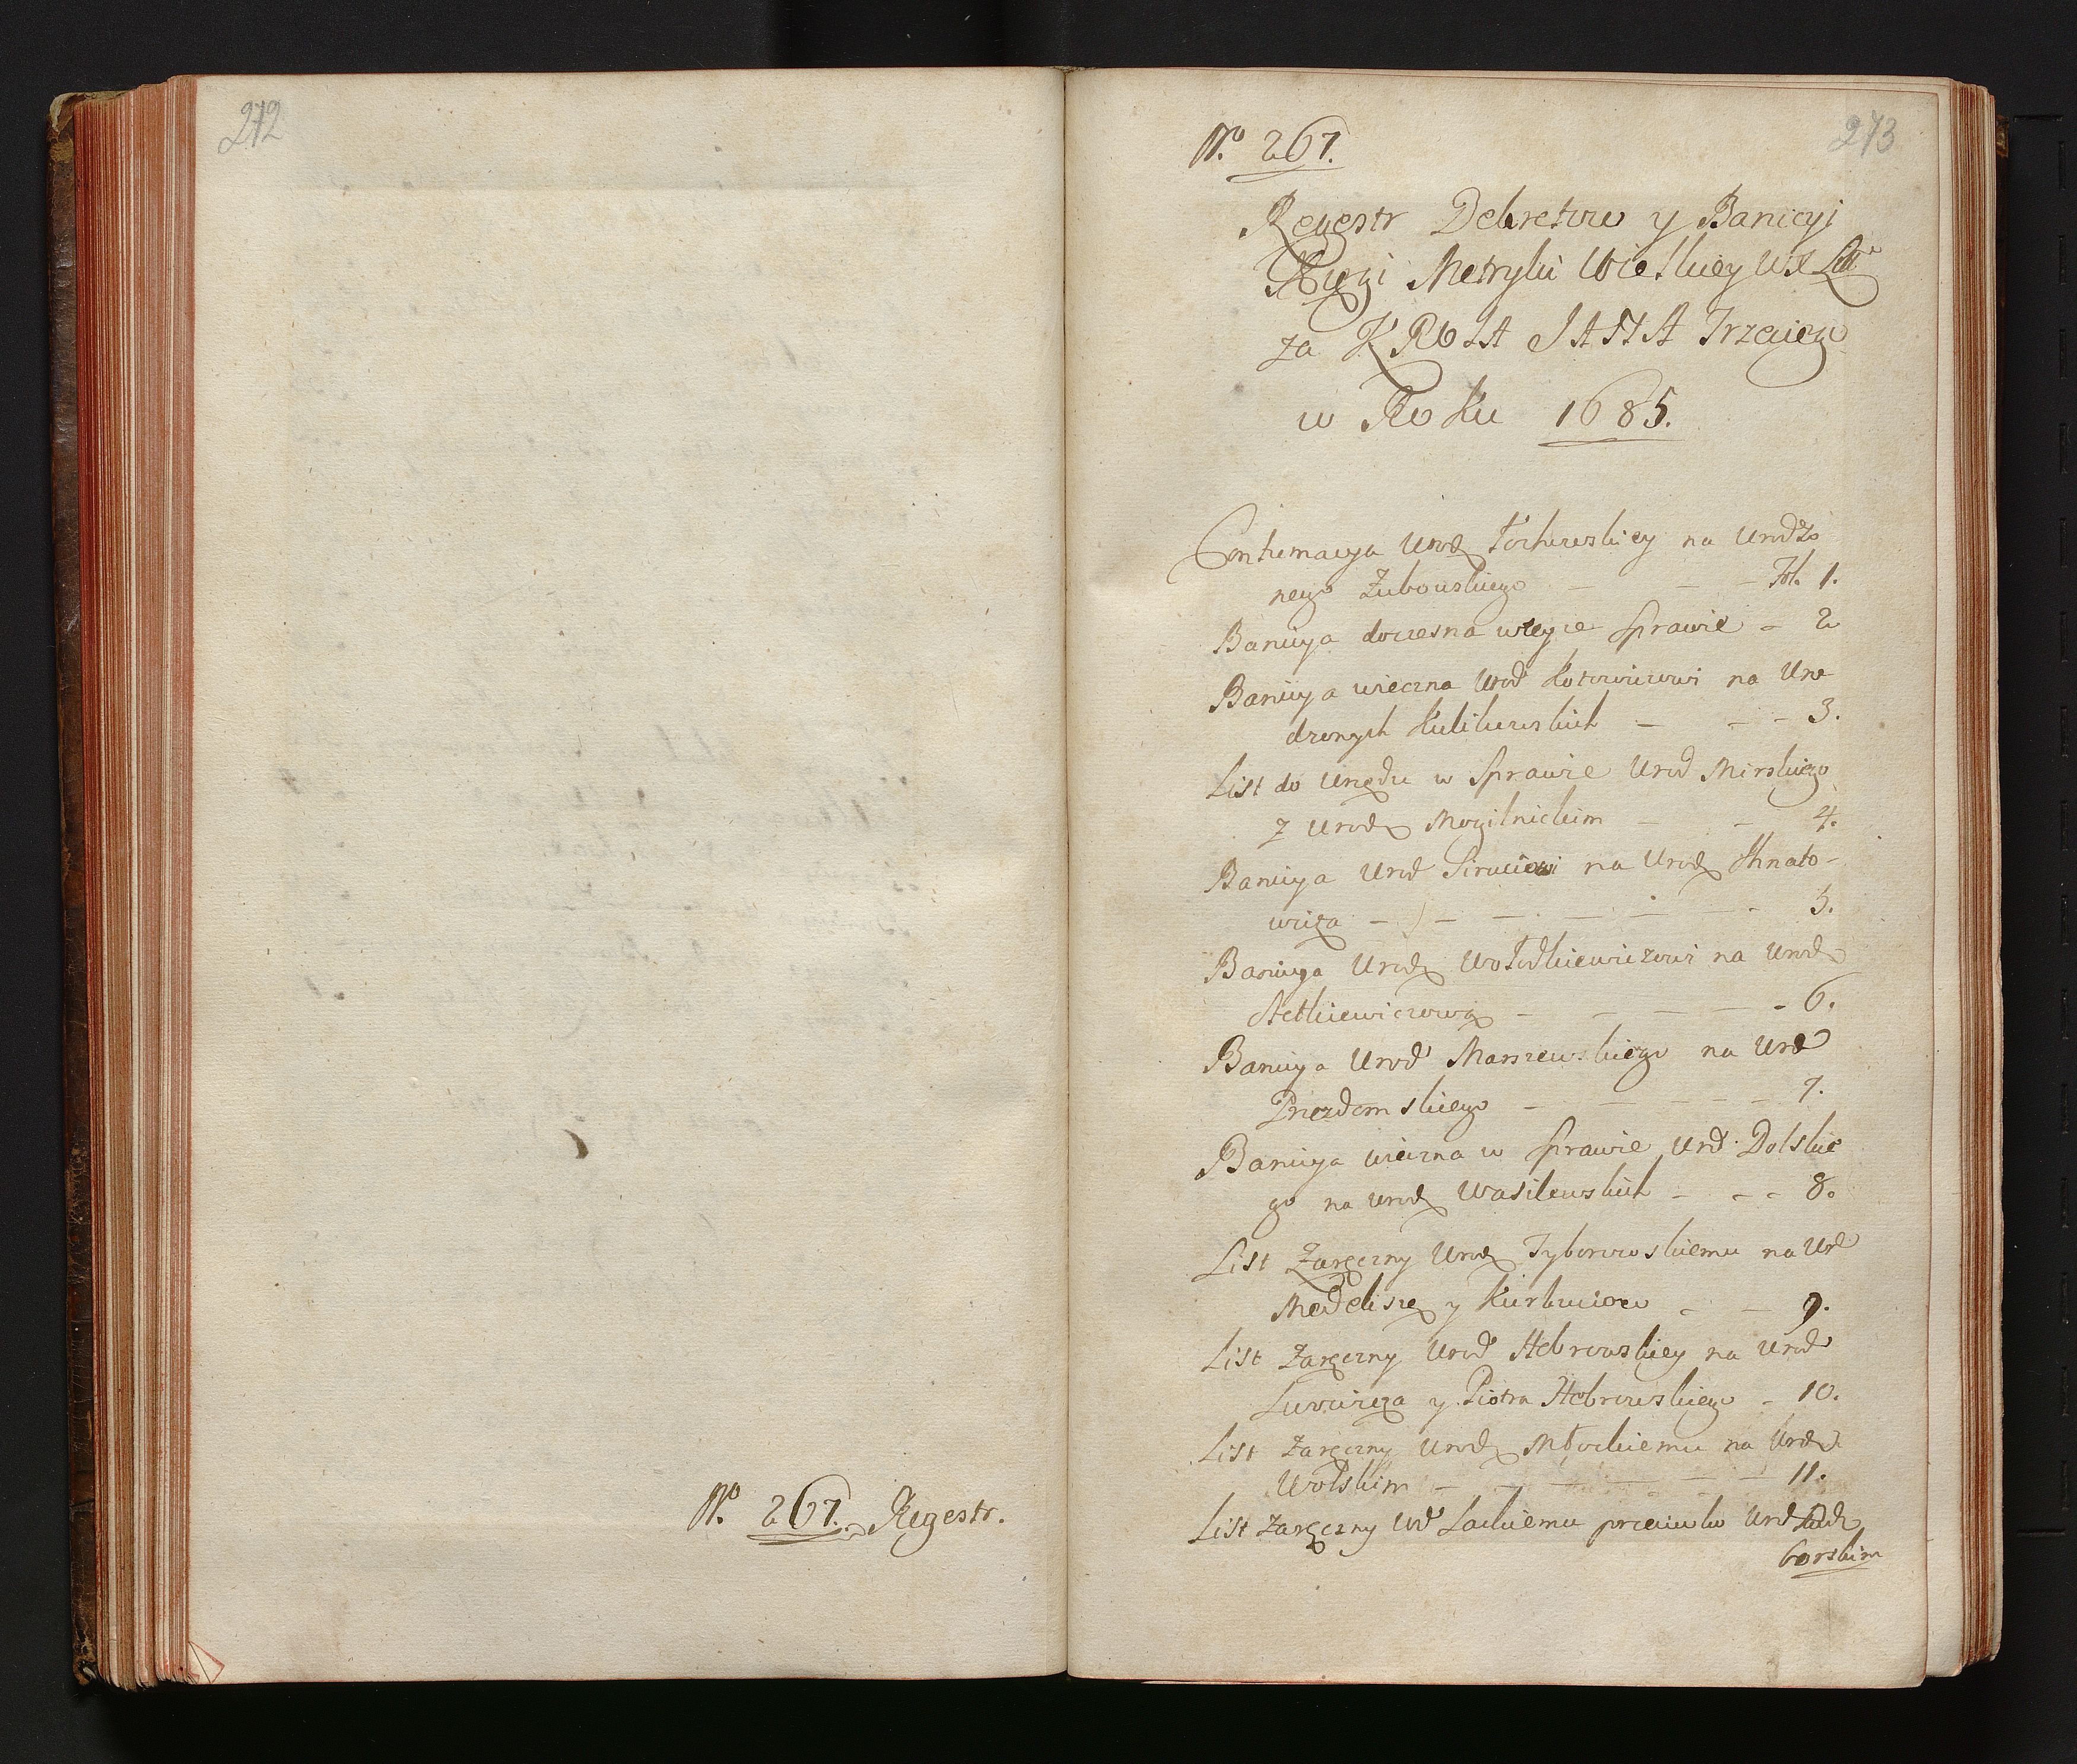 272
Nº 267. Regestr.
273
Nº 267.
Regestr Dekretow y Banicyi
Xięgi Metryki Wielkiey WX Litt
za KROLA JANA Trzeciego
w Roku 1685.
Contumacya Urodz Tochewskiey na Urodzo
nego Zubowskiego — — — Fol. 1.
Banicya doczesna wteyze Sprawie - 2
Banicya wieczna Urod Kotowiczowi na Uro
dzonych Kulikowskich — — - 3.
List do Urzędu w Sprawie Urod Mirskiego
z Urodz Mogilnickim — — 4.
Banicya Urod Siruciowi na Urodz Ihnato-
wicza — — — — — - 5.
Banicya Urodz Wołodkiewiczowi na Urodz
Aetkiewiczową — — — — - 6.
Banicya Urod Marszewskiego na Urod
Przezdomskiego — — — — 7.
Banicya wieczna w Sprawie Urd. Dolskie
go na Urodz Wasilewskich — - - 8.
List Zaręczny Urodz Tyborowskiemu na Ur
Medekszę y Kurkuciow — — 9.
List Zaręczny Urod Hebrowskiey na Urod
Lurowicza y Piotra Hebrowskiego - 10.
List Zaręczny Urodz Młockiemu na Urodz
Wolskim — — — — — 11.
List Zaręczny Ud Lackiemu przeciwko Urd
borskim